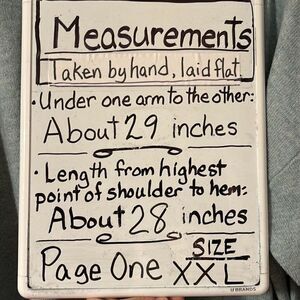 Measurements
Taken by hand, laid flat
• Under one arm to the other:
About 29 inches
• Length from highest
point of shoulder to hem:
About 28 inches
SIZE
Page One XXL
U BRANDS